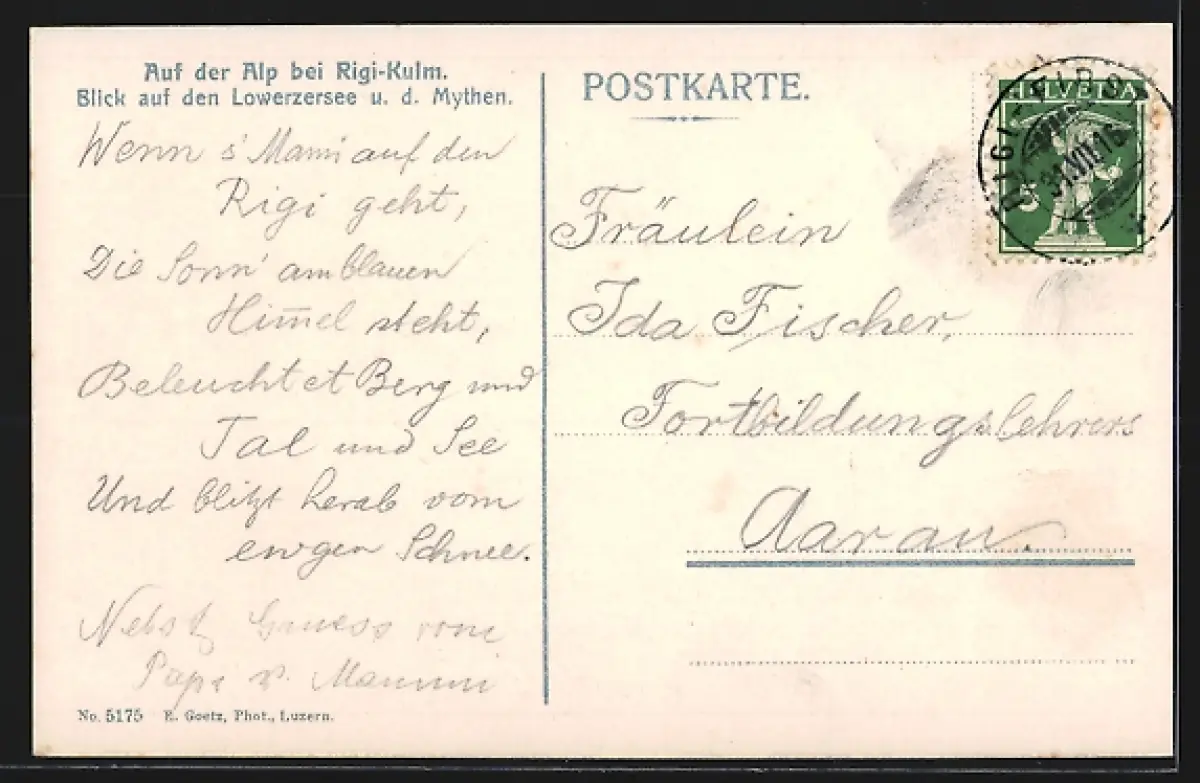 Auf der Alp bei Rigi-Kulm.
Blick auf den Lowerzersee u. d. Mythen.
Wenn s' Mami auf den
Rigi geht,
Die Sonn' am blauen
Him̄el steht,
Beleuchtet Berg und
Tal und See
Und blitzt herab vom
ewgen Schnee.
Nebst Gruess vom
Papa u. Mammi
No. 5175 E. Goetz, Phot., Luzern.
POSTKARTE.
HELVETIA
5
31.VII.
Fräulein
Ida Fischer,
Fortbildungslehrers
Aarau.